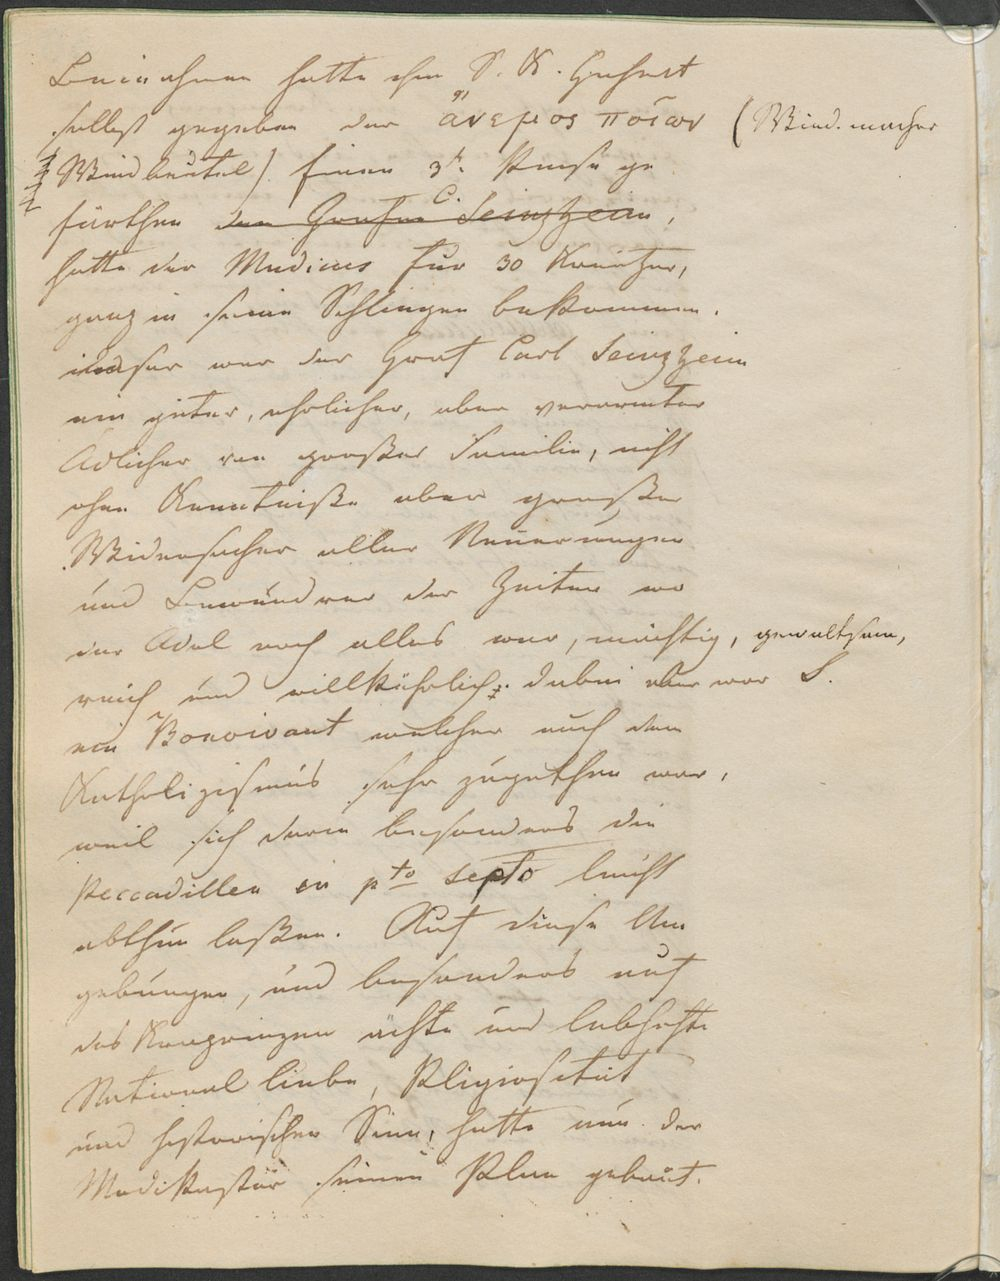 Beinahmen hatte ihm S. K. Hoheit
selbst gegeben der ἄνεμος ποιων (Windmacher
Windbeutel). Einen 3t.
fürther den Grafen C. Seinsheim,
hatte der Medicus für 30 Kreutzer,
ganz in seine Schlingen bekommen.
dieser war der Graf Carl Seinsheim
ein guter, ehrlicher, aber verarmter
Adlicher von großer Familie, nicht
ohne Kenntniße aber großer
Widersacher aller Neuerungen
und Bewundrer der Zeiten wo
der Adel noch alles war, mächtig, gewaltsam,
reich und willkührlich. dabei aber war S.
ein Bonvivant welcher auch dem
Katholizismus sehr zugethan war,
weil sich darin besonders die
Peccadillen in pto septo leicht
abthun laßen. Auf diese Um
gebungen, und besonders auf
des Kronprinzen ächte und lebhafte
National liebe, Religiosität
und historischen Sinn, hatte nun der
Medikaster seinen Plan gebaut.